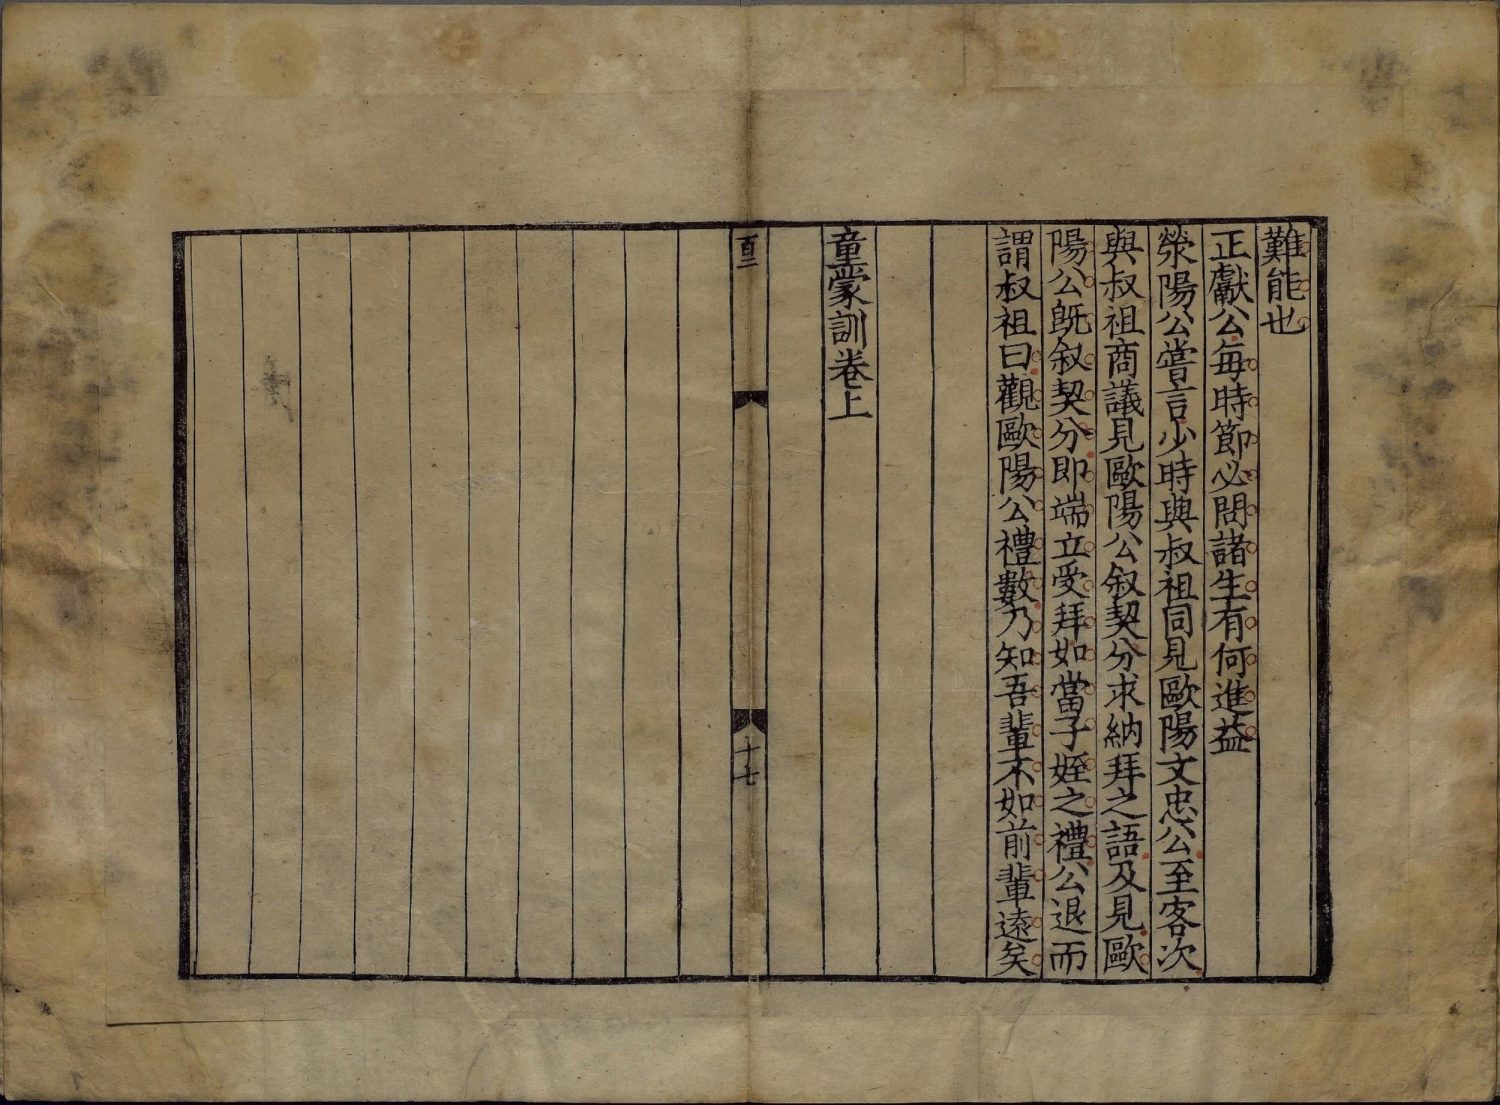 難能也
正獻公每時節必問諸生有何進益
滎陽公嘗言少時與叔祖同見歐陽文忠公至客次
與叔祖商議見歐陽公叙契分求納拜之語及見歐
陽公旣叙契分即端立受拜如當子姪之禮公退而
謂叔祖曰觀歐陽公禮數乃知吾輩不如前輩遠矣
童蒙訓卷上
百二
十七